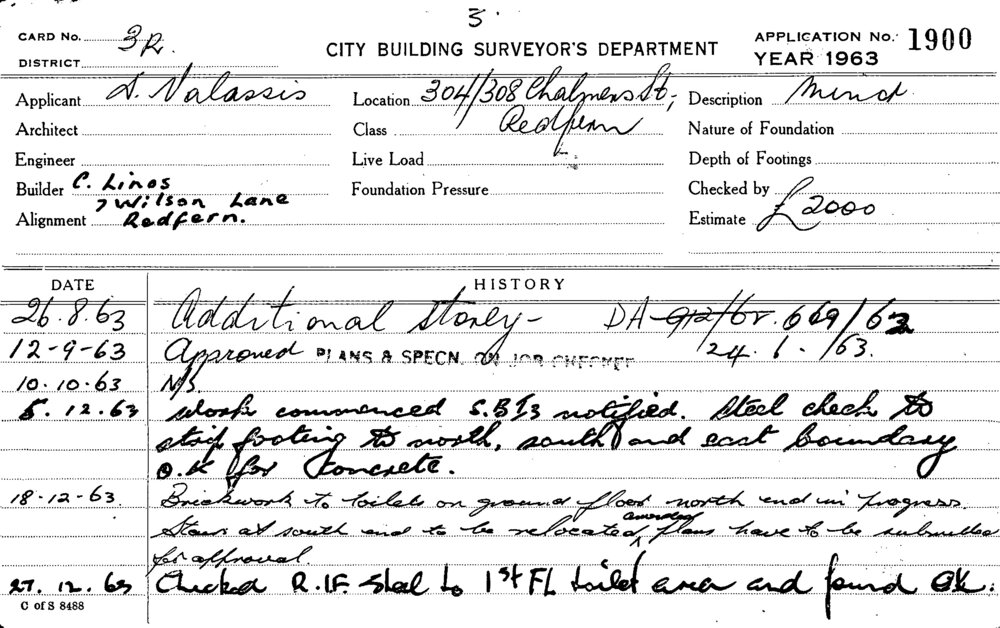 3
CARD No. 3R.
CITY BUILDING SURVEYOR'S DEPARTMENT
APPLICATION No. 1900
YEAR 1963
DISTRICT
Applicant S. Valassis
Location 304/308 Chalmers St,
Redfern
Description
Architect
Class
Nature of Foundation
Engineer
Live Load
Depth of Footings
Builder C. Linos
7 Wilson Lane
Redfern.
Foundation Pressure
Checked by
Alignment
Estimate £2000
DATE HISTORY
26.8.63 Additional Storey - DA 669/62
12-9-63 Approved PLANS & SPECN. ON JOB CHECKED 24.1./63.
10.10.63 N/S.
5.12.63 Work commenced S.B.I's notified. Steel check to
strip footing to north, south and east boundary
O.K for concrete.
18-12-63 Brickwork to toilets on ground floor north end in progress.
Stairs at south end to be relocated, amended plans have to be submitted
for approval.
27.12.63 Checked R.I.F. Steel to 1st FL toilet area and found OK.
C of S 8488